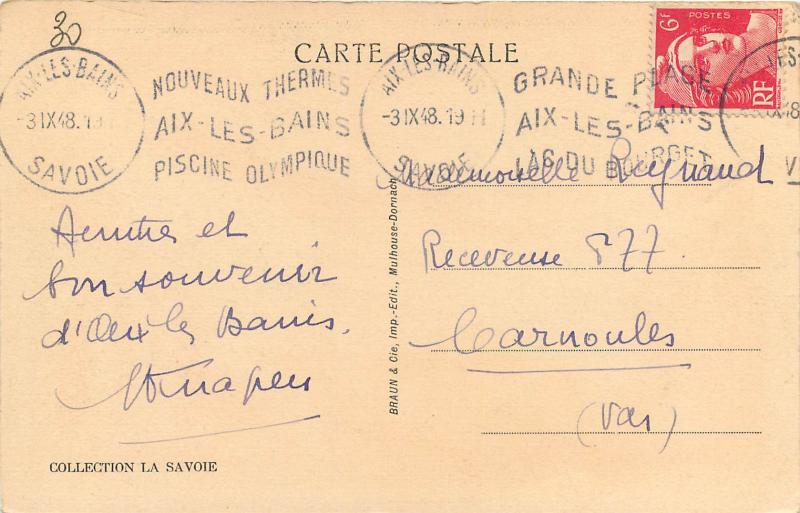 30
CARTE POSTALE
6F
POSTES
RF
AIX-LES-BAINS
-3 IX 48. 19
SAVOIE
NOUVEAUX THERMES
AIX-LES-BAINS
PISCINE OLYMPIQUE
AIX-LES-BAINS
-3 IX 48. 19 H
SAVOIE
GRANDE PLAGE
AIX-LES-BAINS
LAC DU BOURGET
Amitiés et
bon souvenir
d'Aix les Bains.
BRAUN & Cie, Imp.-Edit., Mulhouse-Dornach
Mademoiselle Reynaud
Receveuse
Carnoules
(Var)
COLLECTION LA SAVOIE